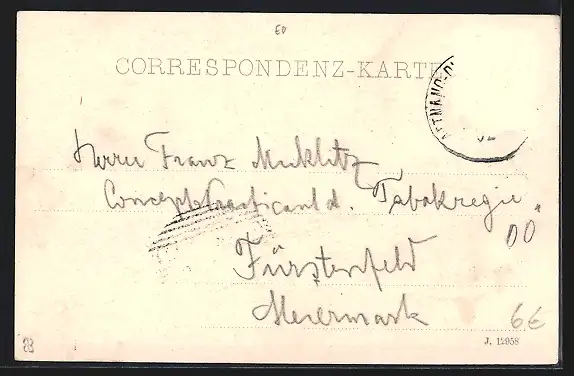 CORRESPONDENZ-KARTE
Herrn Franz Muklitz
Conceptspracticant d. Tabakregie
Fürstenfeld
Steiermark
6€
J. 12958